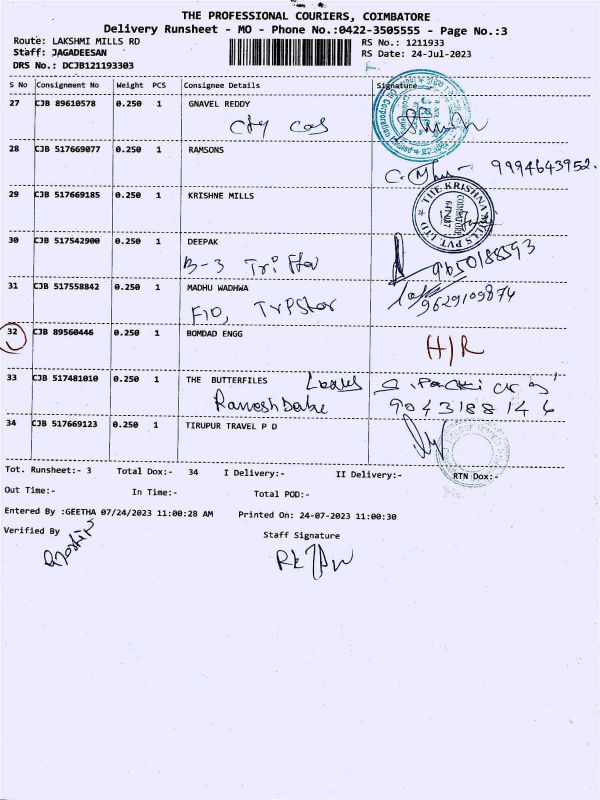 THE PROFESSIONAL COURIERS, COIMBATORE
Delivery Runsheet - MO - Phone No.:0422-3505555 - Page No.:3
Route: LAKSHMI MILLS RD RS No.: 1211933
Staff: JAGADEESAN RS Date: 24-Jul-2023
DRS No.: DCJB121193303
S No Consignment No Weight PCS Consignee Details Signature
27 CJB 89610578 0.250 1 GNAVEL REDDY
City
28 CJB 517669077 0.250 1 RAMSONS
9994643952.
29 CJB 517669185 0.250 1 KRISHNE MILLS
THE KRISHNA MILLS PVT. LTD
COIMBATORE
30 CJB 517542900 0.250 1 DEEPAK
B-3 9650188593
31 CJB 517558842 0.250 1 MADHU WADHWA
F10, 9629109874
32 CJB 89560446 0.250 1 BOMDAD ENGG
H/R
33 CJB 517481010 0.250 1 THE BUTTERFILES
9043188144
34 CJB 517669123 0.250 1 TIRUPUR TRAVEL P D
Tot. Runsheet:- 3 Total Dox:- 34 I Delivery:- II Delivery:- RTN Dox:-
Out Time:- In Time:- Total POD:-
Entered By :GEETHA 07/24/2023 11:00:28 AM Printed On: 24-07-2023 11:00:30
Verified By Staff Signature